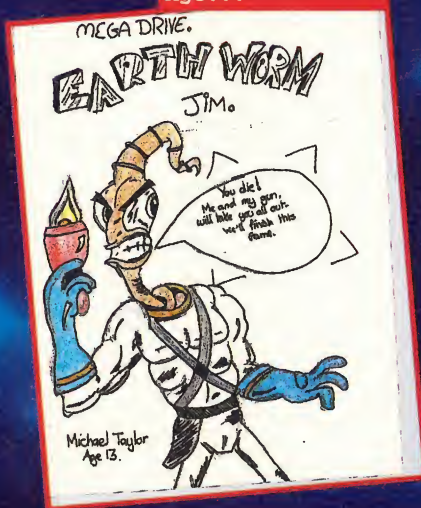 MEGA DRIVE.
EARTH WORM
JIM.
You die!
Me and my gun,
will take you all out.
We'll finish this
game.
Michael Taylor
Age 13.